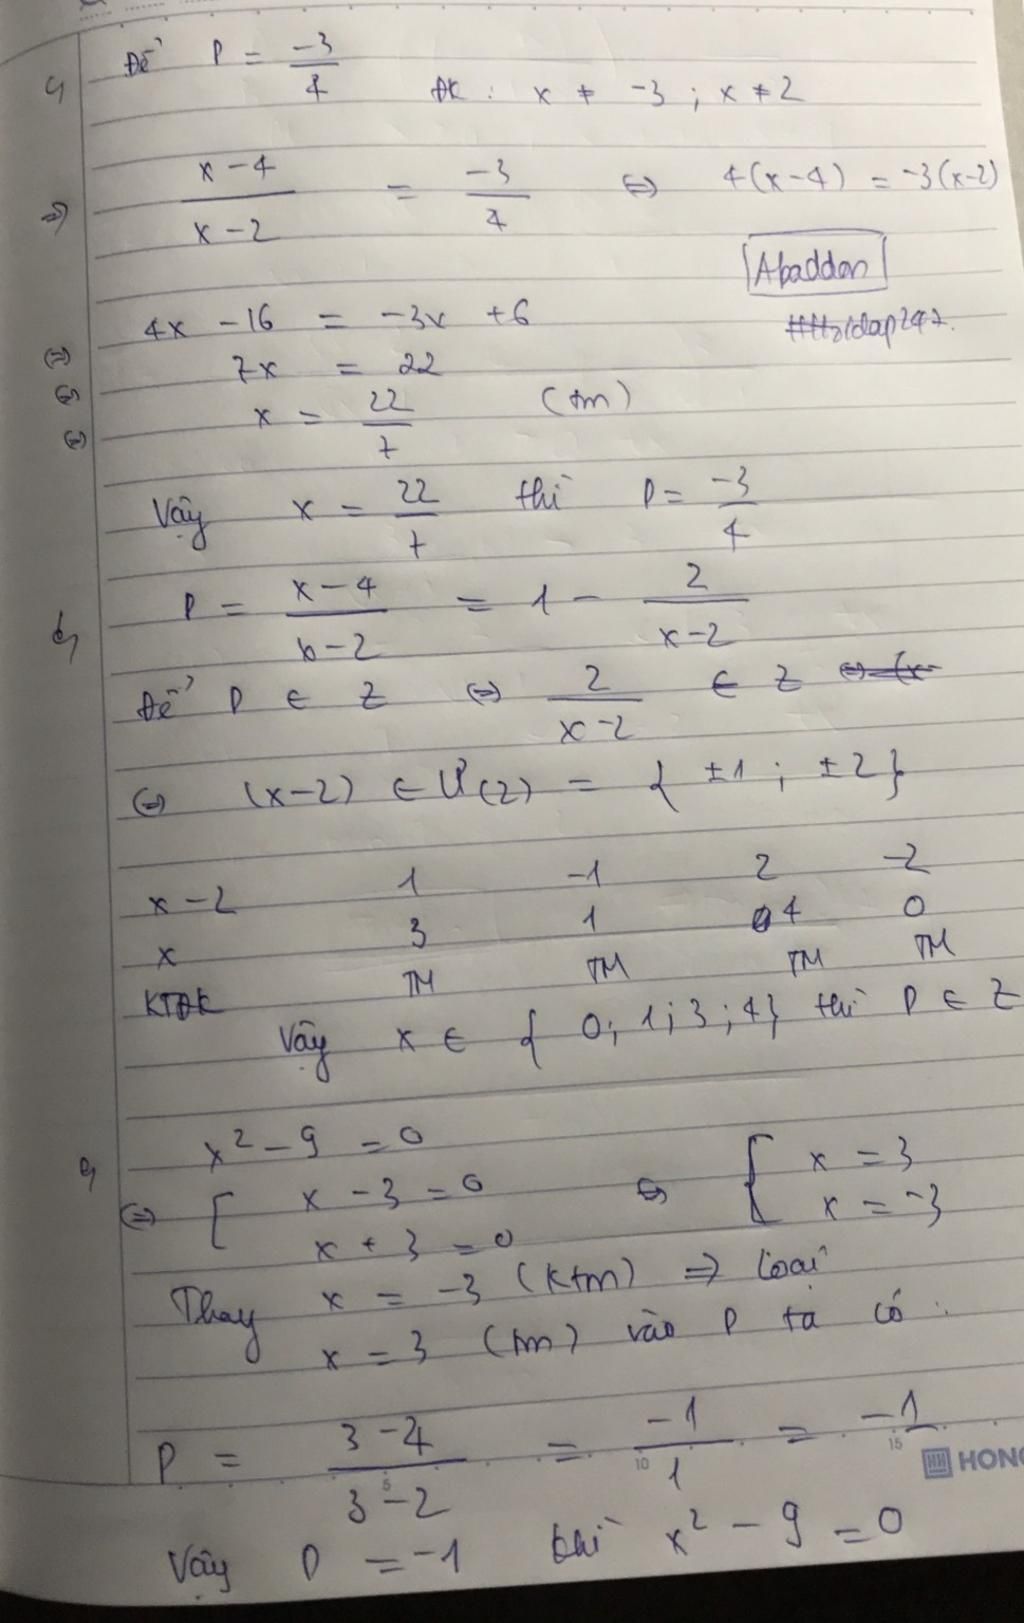 c, Để P = -3/4 ĐK : x ≠ -3 ; x ≠ 2
=> x-4/x-2 = -3/4 <=> 4(x-4) = -3(x-2)
Abaddon
<=> 4x - 16 = -3x + 6
<=> 7x = 22
<=> x = 22/7 (tm)
Vậy x = 22/7 thì P = -3/4
d, P = x-4/x-2 = 1 - 2/x-2
Để P ∈ Z <=> 2/x-2 ∈ Z
<=> (x-2) ∈ Ư(2) = { ±1 ; ±2 }
x-2 1 -1 2 -2
x 3 1 4 0
KTĐK TM TM TM TM
Vậy x ∈ { 0; 1; 3; 4} thì P ∈ Z
e, x² - 9 = 0
<=> [ x - 3 = 0 <=> [ x = 3
x + 3 = 0 x = -3
Thay x = -3 (ktm) => loại
x = 3 (tm) vào P ta có :
P = 3-4/3-2 = -1/1 = -1
5 10 15
HONG
Vậy P = -1 khi x² - 9 = 0